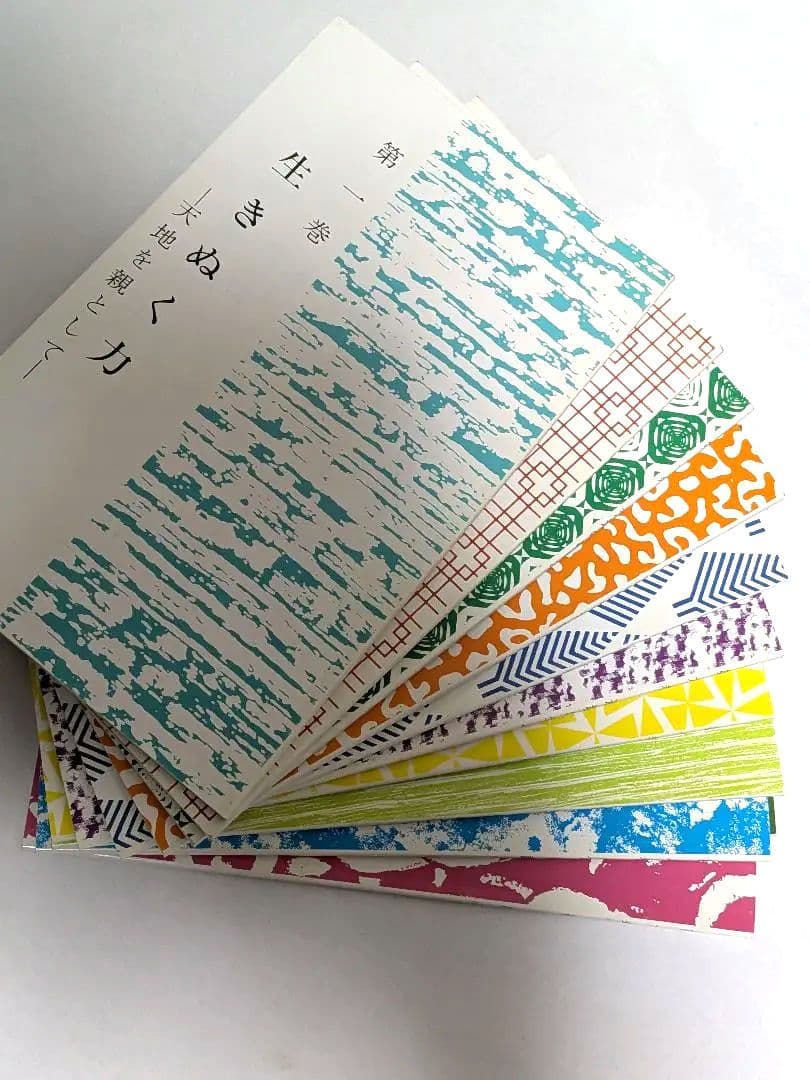 第一巻
生きぬく力
―天地を親として―